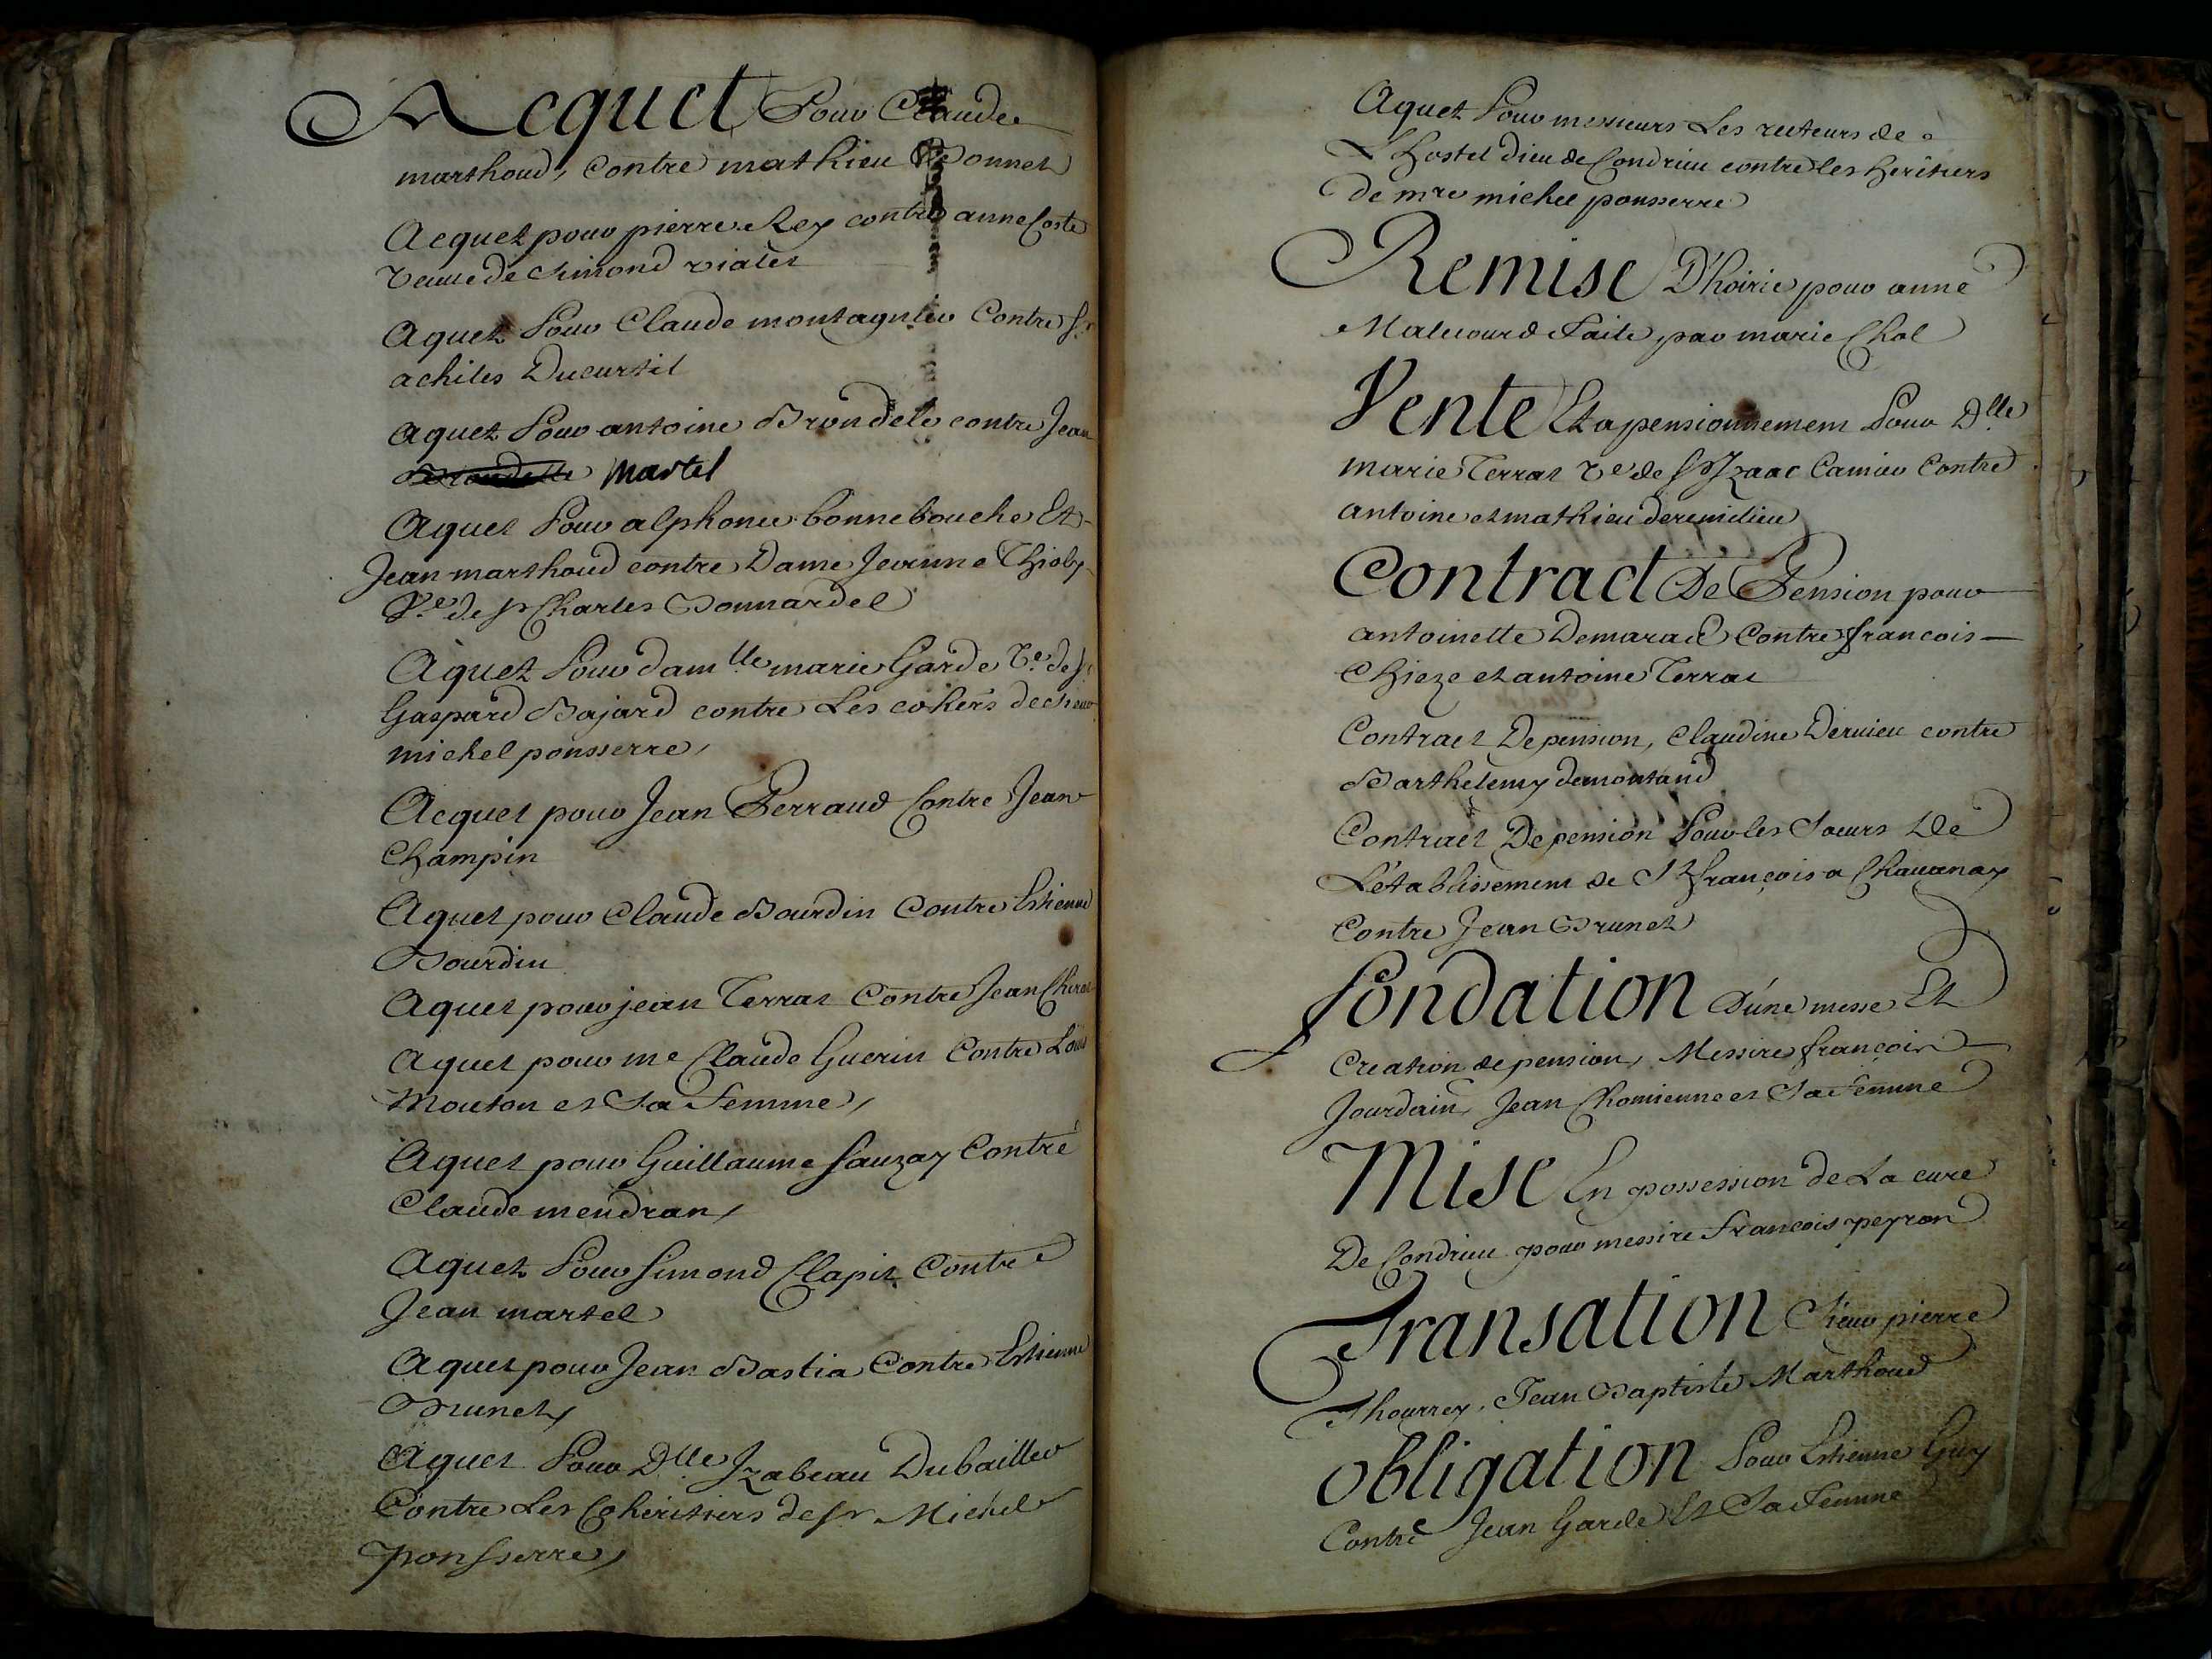 Acquet Pour Claude
marthoud, contre mathieu Bonnet
Acquet pour pierre Rey contre anne Coste
veuue de simond vialet
Aquet Pour Claude montagnier Contre Sr
achiles Ducurtil
Aquet Pour antoine Brondele contre Jean
Martel
Aquet Pour alphonce bonnebouche Et
Jean marthoud contre Dame Jeanne Thioly
Ve de Sr Charles Bonnardel
Aquet Pour damlle marie Garde Ve de Sr
Gaspard Bajard contre Les cohers de sieur
michel ponsserre,
Acquet pour Jean Perraud Contre Jean
Champin
Aquet pour Claude Bourdin Contre Estienne
Bourdin
Aquet pour jean Terrat Contre Jean
Aquet pour me Claude Guerin Contre Louis
Mouton et Sa femme,
Aquet pour Guillaume Sauzay Contre
Claude mendran,
Aquet Pour Simond Clapit Contre
Jean martel
Aquet pour Jean Bastia Contre Estienne
Brunet,
Aquet Pour Dlle Izabeau Dubaillev
Contre Les Coheritiers de Sr Michel
ponsserre,
Aquet Pour messieurs Les recteurs de
L'hostel dieu de Condrieu contre les heritiers
de mre michel ponsserre
Remise D'hoirie pour anne
Malecourd Faite par marie Chol
Vente Et apensionnement Pour Dlle
marie Terrat Ve de Sr Izaac Camier Contre
antoine et mathieu deremilieu
Contract De Pension pour
antoinette Demarad Contre francois
Chieze et antoine Terrat
Contract De pension, Claudine Dervieu contre
Barthelemy demontand
Contract De pension Pour les Soeurs De
L'établissement de St françois a Chauanay
Contre Jean Brunet
fondation d'une messe Et
Creation de pension, Messire françois
Jourdain, Jean Chomienne et Sa femme
Mise En possession de La cure
De Condrieu pour messire francois peyron
Transation Sieur pierre
Thourrey, Jean Baptiste Marthoud
obligation Pour Estienne Guy
Contre Jean Garde Et Sa femme